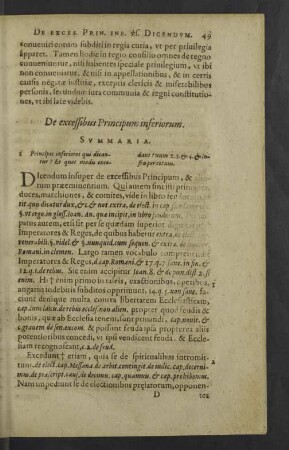 DE EXCES. PRIN. INF. &c. DICENDVM. 49
conueniri coram subditi in regia curia, vt per priuilegia
apparet. Tamen hodie in regio consilio omnes de regno
conueniuntur, nisi habentes speciale priuilegium, vt ibi
non conueniatur, & nisi in appellationibus, & in certis
casibus negatæ iustitiæ, exceptis clericis & miserabilibus
personis, secundùm iura communia & regni constitutio-
nes, vt ibi late videbis.
De excessibus Principum inferiorum.
SVMMARIA.
1 Principes inferiores qui dican-
tur? & quot modis exce-
dant? num 2.3. & 4. & in-
fra
DIcendum insuper de excessibus Principum, &
præeminentium. Qui autem sint isti principes,
duces, marchiones, & comites, vide in libro feudorum
Imperatores & Reges, de quibus habetur extra de
Romani. in clemen. Largo tamen vocabulo comprehendit
Imperatores & Reges, d. cap. Romani. & 17. q. 4. sane. in fin. &
12. q. 1. Sic etiam accipitur Ioan. 8. & de pœn. dist. 2. si
enim. Hi † enim primo in taxis, exactionibus, operibus,
angariis indebitis subditos opprimunt. 14. q. 5. non sane, &
faciunt denique multa contra libertatem Ecclesiasticam,
cap. cum laicis. de rebus eccles. non alien. propter quod feudis &
bonis, quæ ab Ecclesia tenent, sunt priuandi, cap. nouit, &
c. grauem de sent. excom. & possunt feuda ipsa propterea aliis
potentioribus concedi, vt ipsi vendicent feuda, & Eccle-
siam recognoscent, c. 2. de feud.
Excedunt † etiam, quia se de spiritualibus intromit-
tunt. de elect. cap. Messana. de arbit. contingit. de iudic. cap. decerni-
mus. de præscript. causam. de decimis. cap. quamuis. & cap. prohibemus.
Nam impediunt se de electionibus prælatorum, opponen-
D
tes